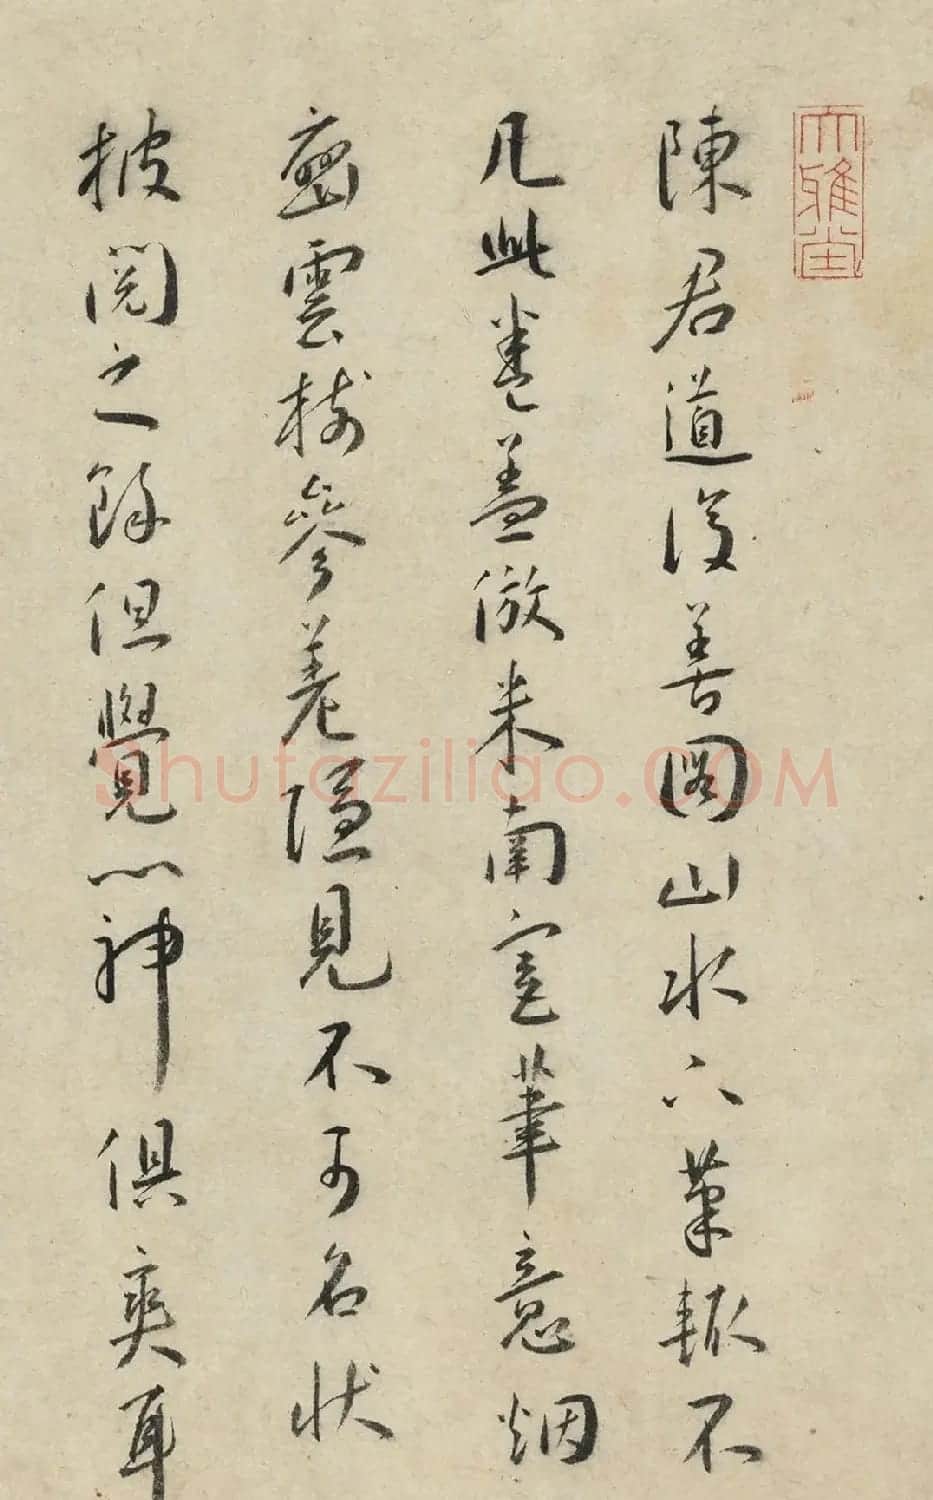 大雅堂
陳君道復善圖山水下筆輒不
凡此卷蓋倣米南宮筆意烟
巒雲樹參差隱見不可名狀
披閱之餘但覺心神俱爽耳
Shufaziliao.COM